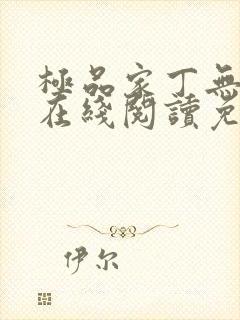 極品家丁無
在綫閱讀免
伊尔